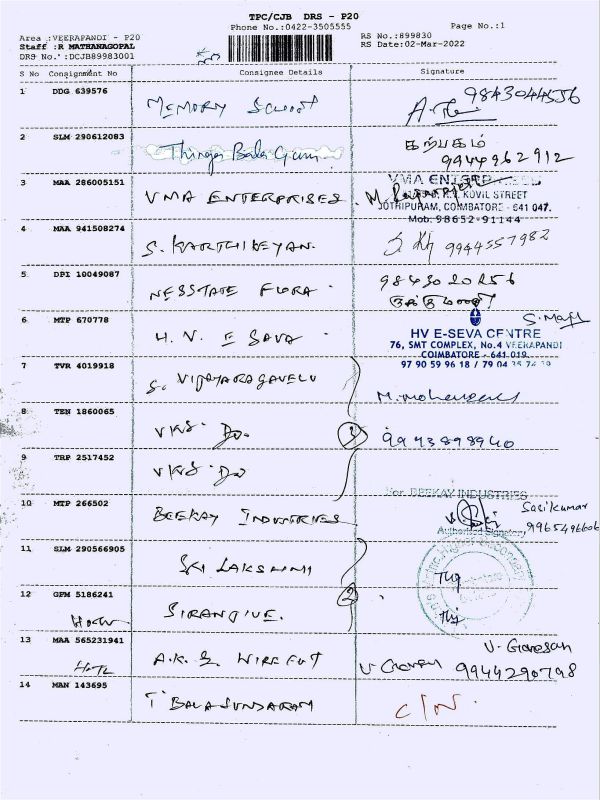 TPC/CJB DRS - P20
Phone No.:0422-3505555
Page No.:1
Area :VEERAPANDI - P20
Staff :R MATHANAGOPAL
DRS No.:DCJB89983001
RS No.:899830
RS Date:02-Mar-2022
S No Consignment No Consignee Details Signature
1 DDG 639576 MEMORY School 9843044556
2 SLM 290612083 கற்பகம்
9944962912
3 MAA 286005151 VMA ENTERPRISES
VMA ENTERPRISES
KOVIL STREET
JOTHIPURAM, COIMBATORE - 641 047.
Mob: 98652-91144
4 MAA 941508274 S. KARTHIKEYAN. 9944557982
5 DPI 10049087 NESSTATE FLORA 98430 20256
6 MTP 670778 H.V. E SAVA
HV E-SEVA CENTRE
76, SMT COMPLEX, No.4 VEERAPANDI
COIMBATORE - 641 019.
97 90 59 96 18 / 79 04
7 TVR 4019918 S. VIJAYARAGAVELU
8 TEN 1860065 VKS. Do. 3 9943898940
9 TRP 2517452 VKS. Do
10 MTP 266502 BEEKAY INDUSTRIES
For BEEKAY INDUSTRIES
Authorised Signatory
Sasikumar
9965496606
11 SLM 290566905 SRI LAKSHMI
12 GPM 5186241 2
13 MAA 565231941 A.K. & WIRE CUT V. Ganesan
9944290798
14 MAN 143695 T BALASUNDARAM